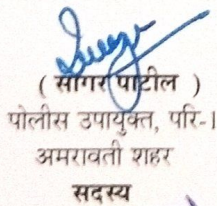 ( सागर पाटील )
पोलीस उपायुक्त, परि-।
अमरावती शहर
सदस्य